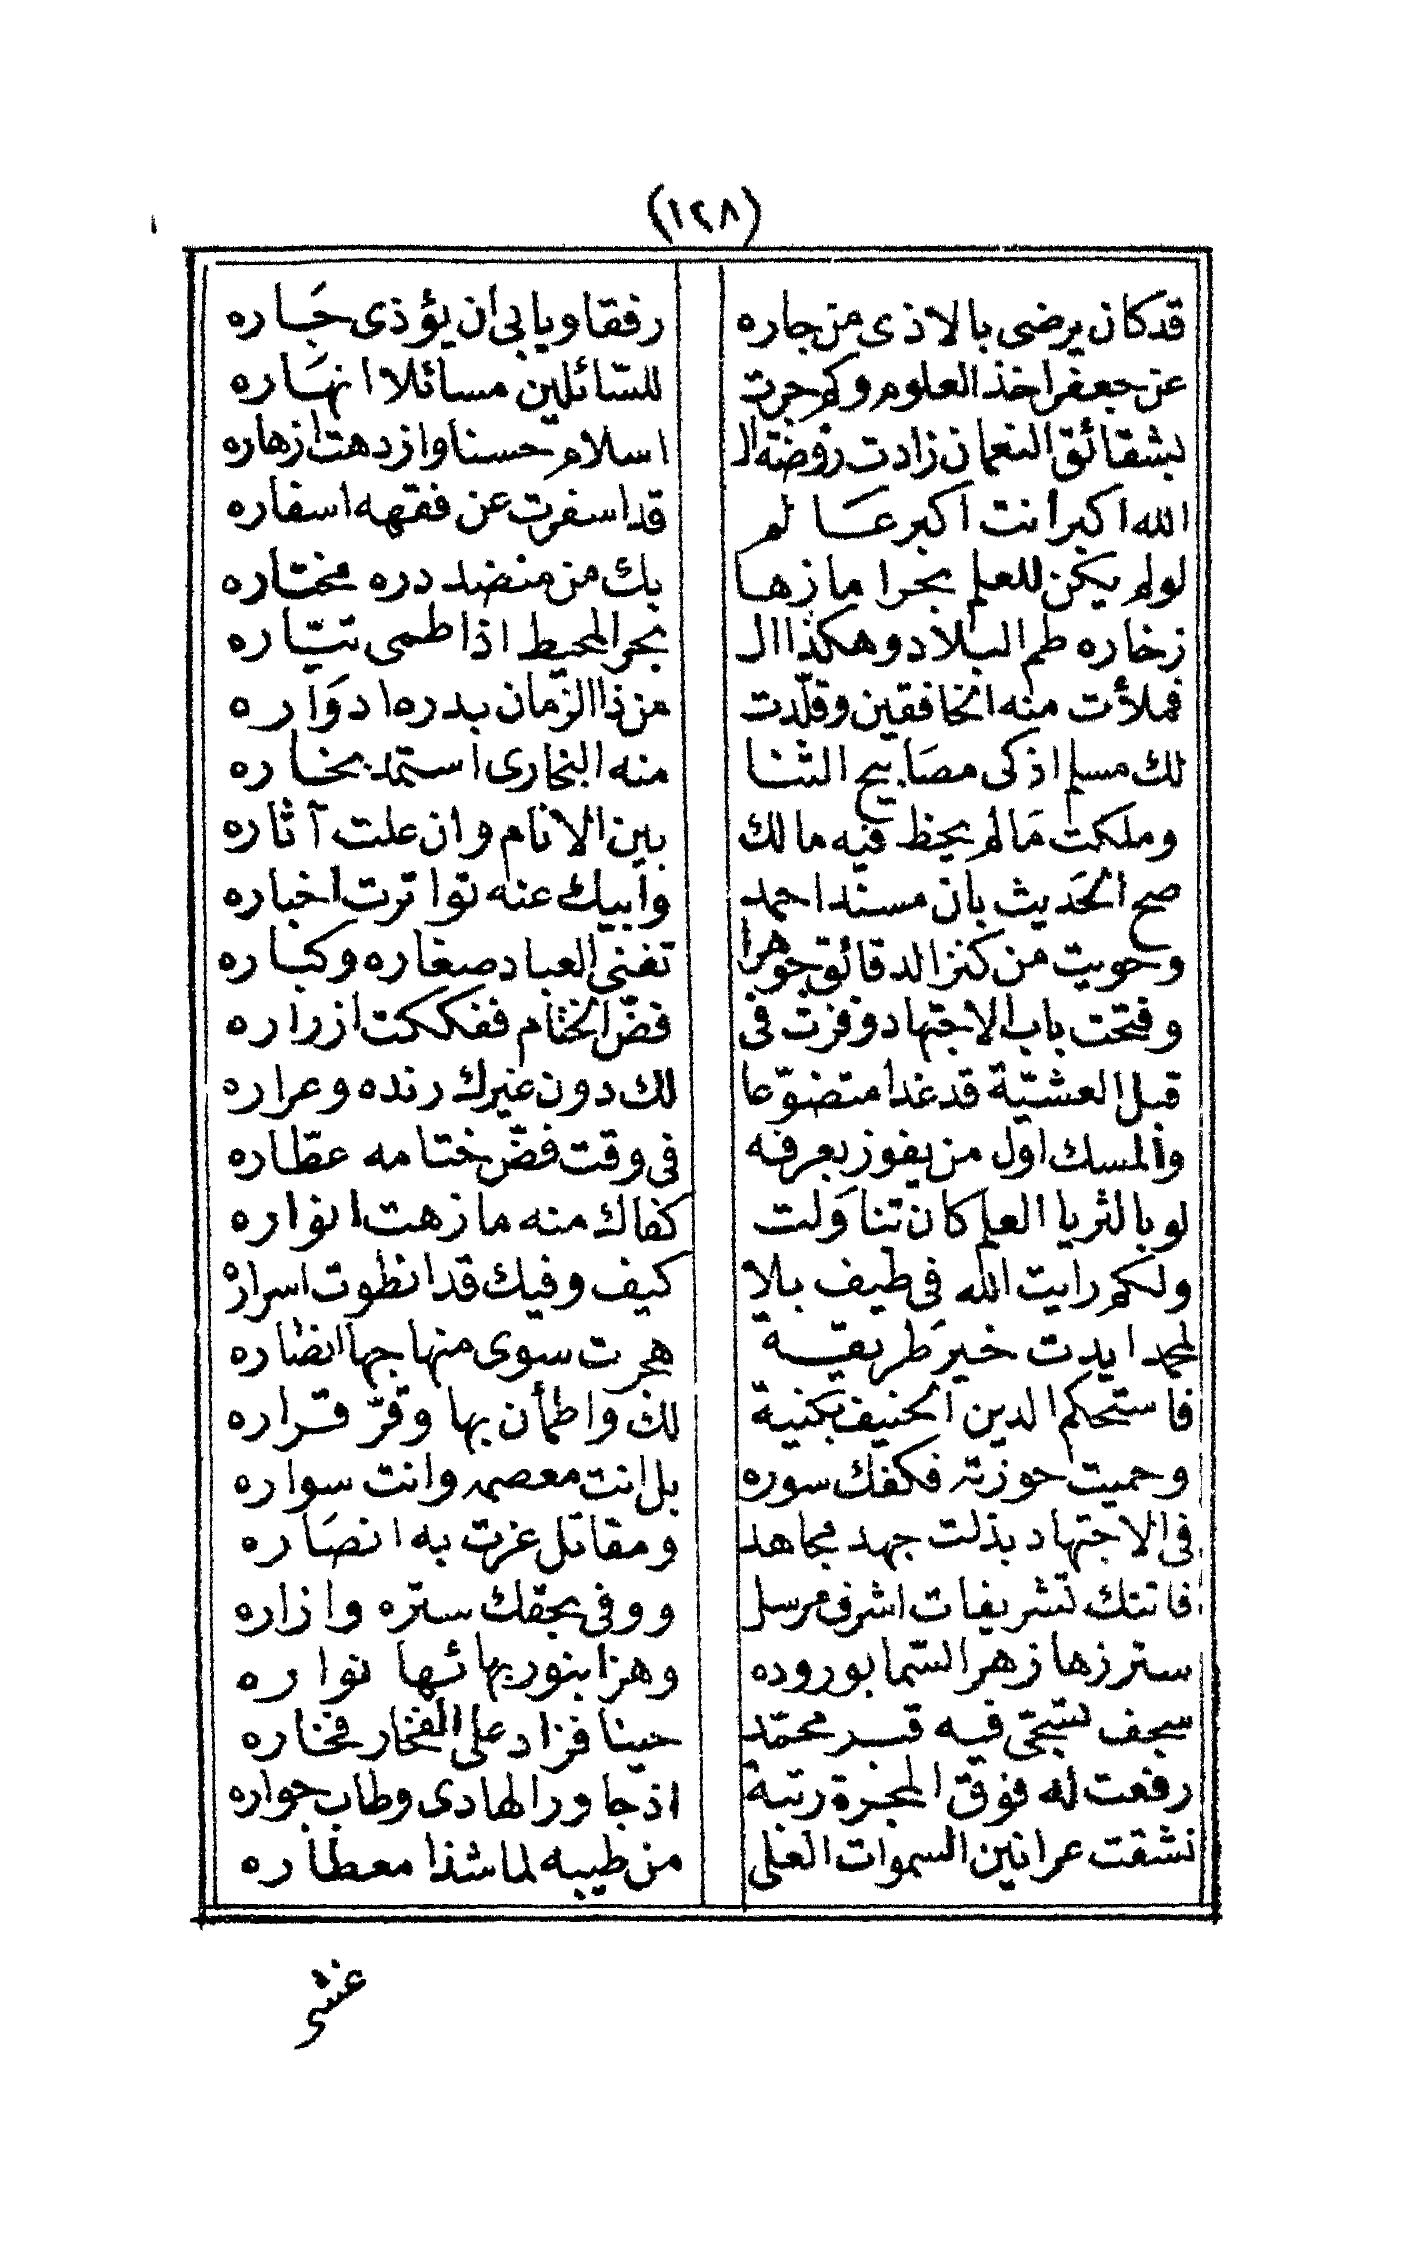 (١٢٨)
قد كان يرضى بالاذى من جاره رفقا ويابى ان يؤذى جَاره
عن جعفر اخذ العلوم وكم جرت للسّائلين مسائلا انهَاره
بشقائق النعمان زادت روضة ال اسلام حسنا وازدهت ازهاره
الله اكبر أنت اكبر عَالم قد اسفرت عن فقهه اسفاره
لولم يكن للعلم بحرا ما زها بك من منضد دره مختاره
زخاره طم البلاد وهكذا ال بحر المحيط اذا طمى تيّاره
فملأت منه الخافقين وقلّدت من ذا الزمان بدره ادوَاره
لك مسلم اذكى مصَابيح الثنا منه البخارى استمد بخاره
وملكت مَالم يحظ فيه مالك بين الانام وان علت آثاره
صح الحَديث بان مسند احمد وابيك عنه تواترت اخباره
وحويت من كنز الدقائق جوهرا تغنى العباد صغاره وكباره
وفتحت باب الاجتهاد وفزت فى فضّ الختام ففككت ازراره
قبل العشيّة قد غدا متضوّعا لك دون غيرك رنده وعراره
والمسك اول من يفوز بعرفه فى وقت فضّ ختامه عطّاره
لو بالثريا العلم كان تناوَلت كفاك منه ما زهت انواره
ولكم رايت الله فى طيف بلا كيف وفيك قد انطوت اسراره
لمحمد ايدت خير طريقة هجرت سوى منهاجها انظاره
فاستحكم الدين الحنيف بكنية لك واطمأن بها وقرّ قراره
وحميت حوزته فكفك سوره بل انت معصمه وانت سواره
فى الاجتهاد بذلت جهد مجاهد ومقاتل عزت به انصَاره
فاتتك تشريفات اشرف مرسل ووفى بحقك ستره وازاره
ستر زها زهر السّما بوروده وهزا بنور بهائها نواره
سجف تسجى فيه قبر محمّد حينا فزاد على الفخار فخاره
رفعت له فوق المجرة رتبة اذ جاور الهادى وطاب جواره
نشقت عرانين السموات العلى من طيبه لما شذا معطاره